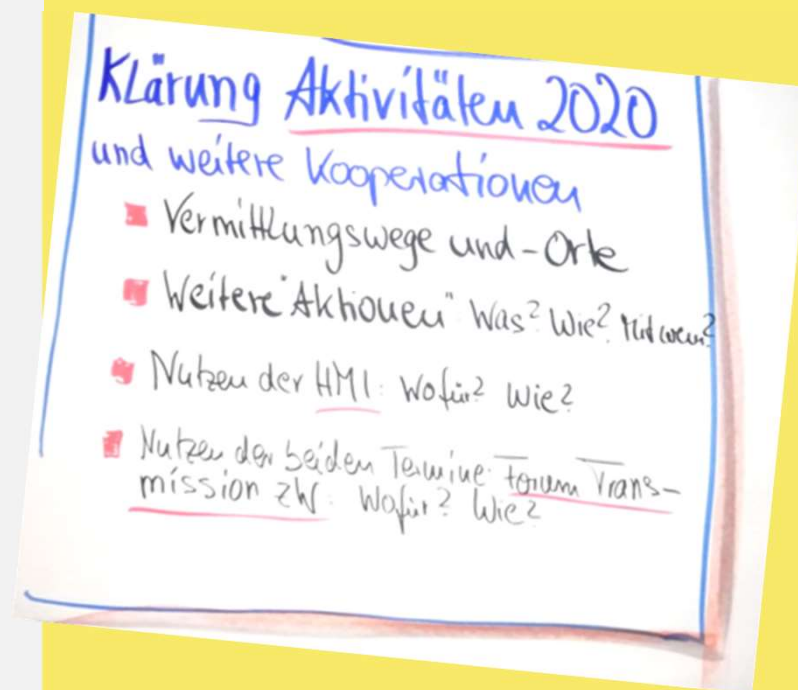 Klärung Aktivitäten 2020
und weitere Kooperationen
Vermittlungswege und -Orte
Weitere "Aktionen" Was? Wie? Mit wem?
Nutzen der HMI: Wofür? Wie?
Nutzen der beiden Termine: Forum Trans-
mission ZW: Wofür? Wie?